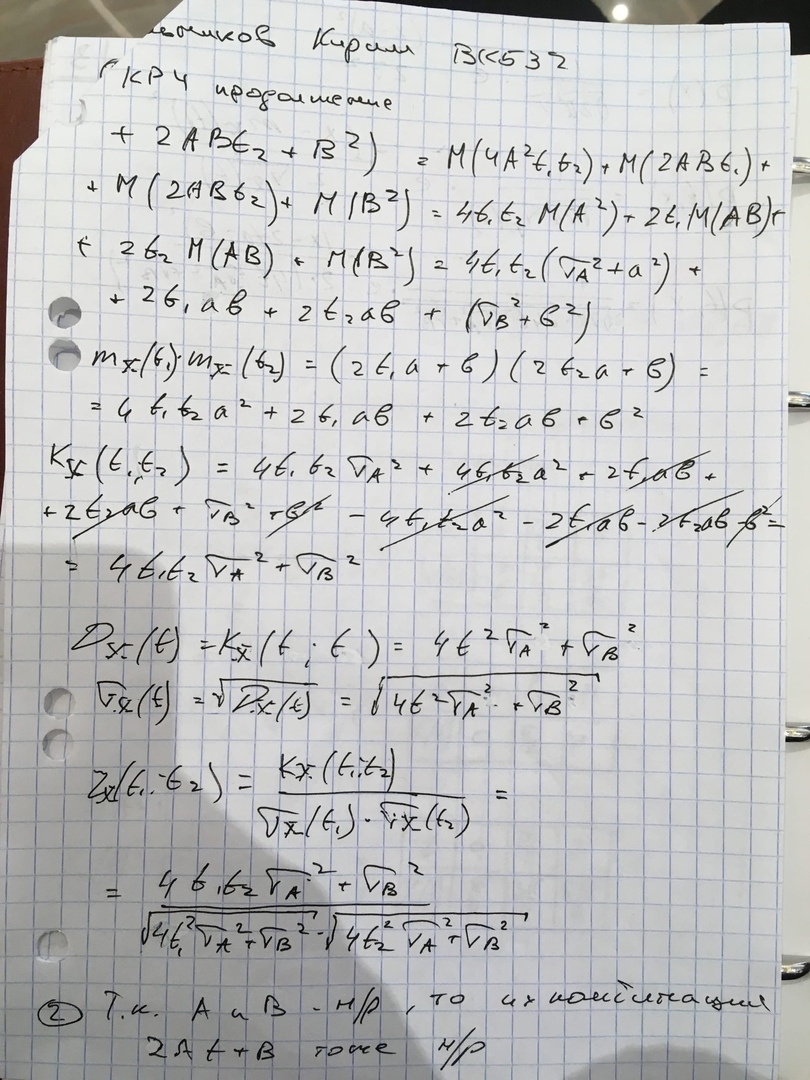 Кирилл ВКБ32
ГКР4 продолжение
+ 2ABt₂ + B²) = M(4A²t₁t₂) + M(2ABt₁) +
+ M(2ABt₂) + M(B²) = 4t₁t₂ M(A²) + 2t₁M(AB) +
+ 2t₂ M(AB) + M(B²) = 4t₁t₂(σ_A² + a²) +
+ 2t₁ab + 2t₂ab + (σ_B² + b²)
m_x(t₁)·m_x(t₂) = (2t₁a + b)(2t₂a + b) =
= 4t₁t₂a² + 2t₁ab + 2t₂ab + b²
K_x(t₁;t₂) = 4t₁t₂σ_A² + 4t₁t₂a² + 2t₁ab +
+ 2t₂ab + σ_B² + b² - 4t₁t₂a² - 2t₁ab - 2t₂ab - b² =
= 4t₁t₂σ_A² + σ_B²
D_x(t) = K_x(t;t) = 4t²σ_A² + σ_B²
σ_x(t) = √D_x(t) = √(4t²σ_A² + σ_B²)
r_x(t₁;t₂) = K_x(t₁;t₂) / (σ_x(t₁)·σ_x(t₂)) =
= (4t₁t₂σ_A² + σ_B²) / (√(4t₁²σ_A² + σ_B²)·√(4t₂²σ_A² + σ_B²))
② Т.к. A и B - н/р, то их комбинация
2At+B тоже н/р